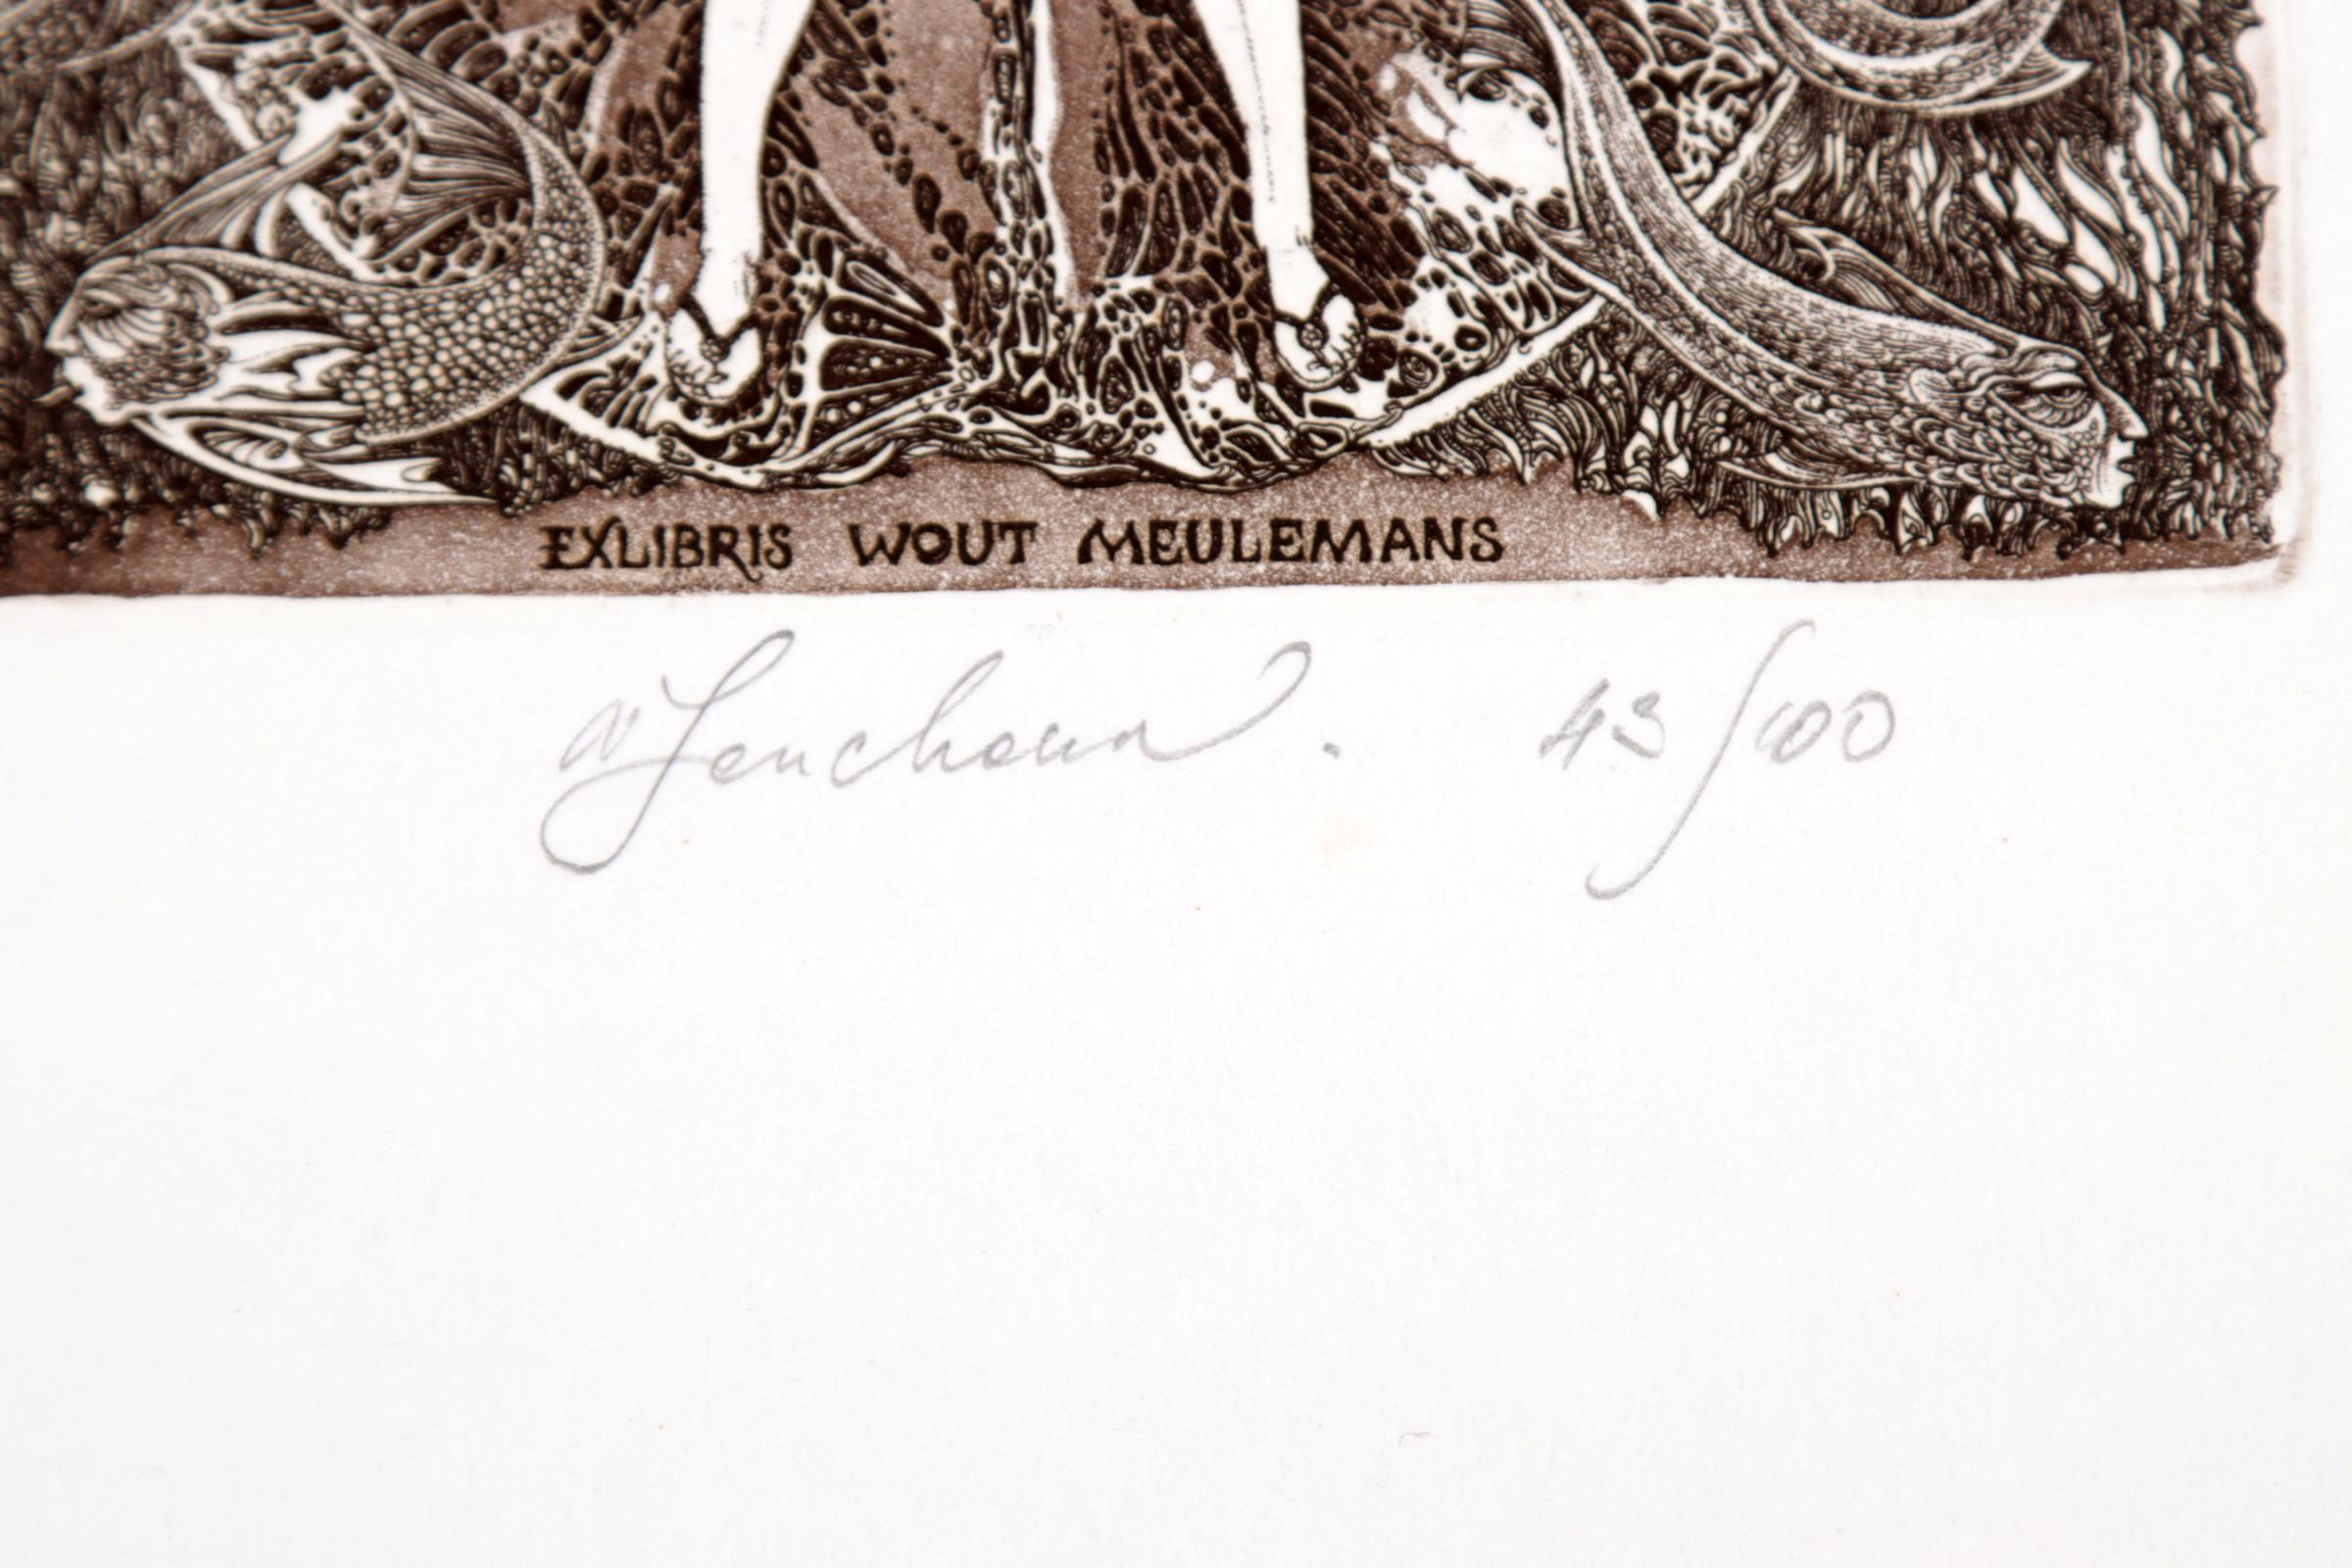 EXLIBRIS WOUT MEULEMANS
43/100